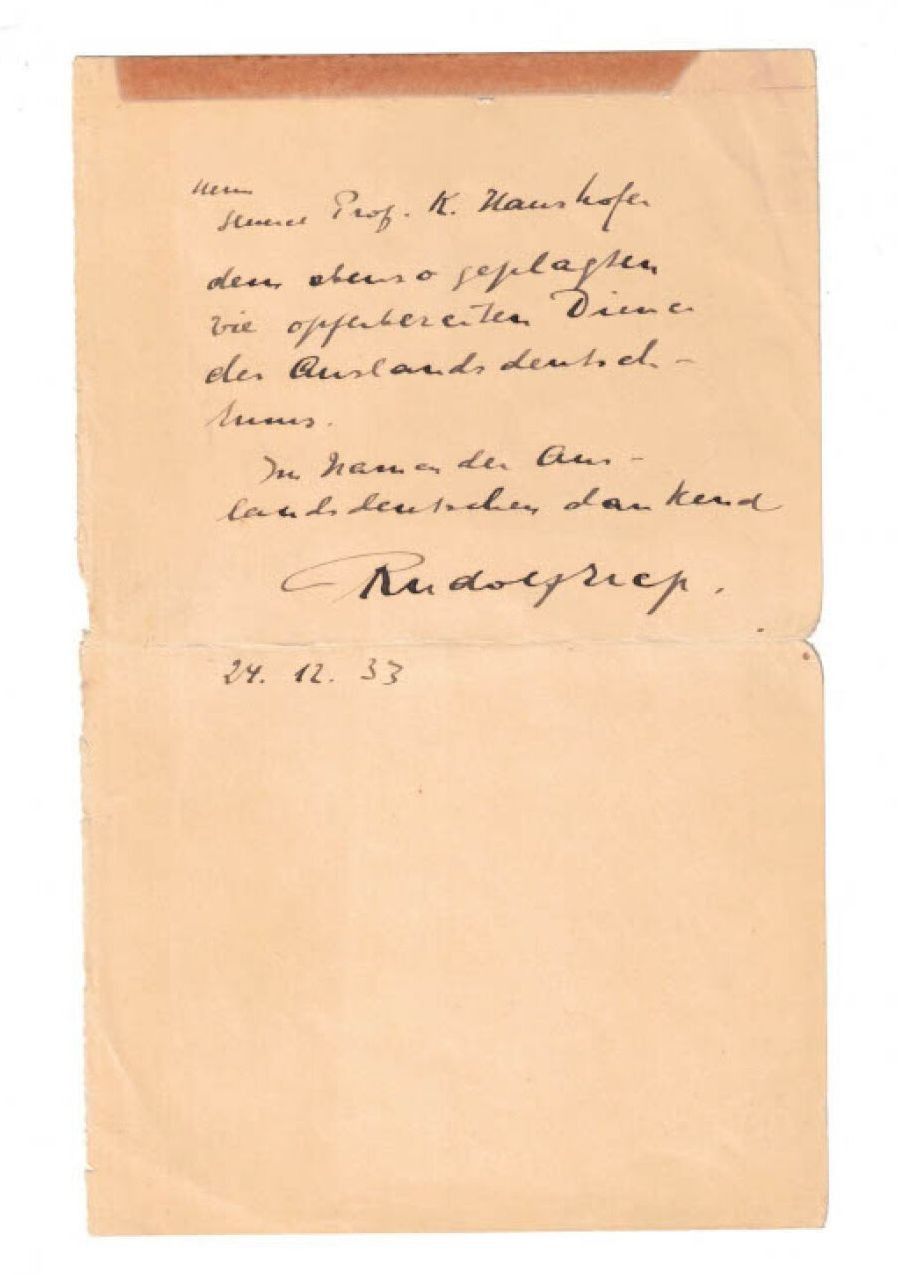 Herrn
General Prof. K. Haushofer
dem ebenso geplagten
wie opferbereiten Diener
des Auslandsdeutsch-
tums.
Im Namen der Aus-
landsdeutschen dankend
Rudolf Heß.
24. 12. 33